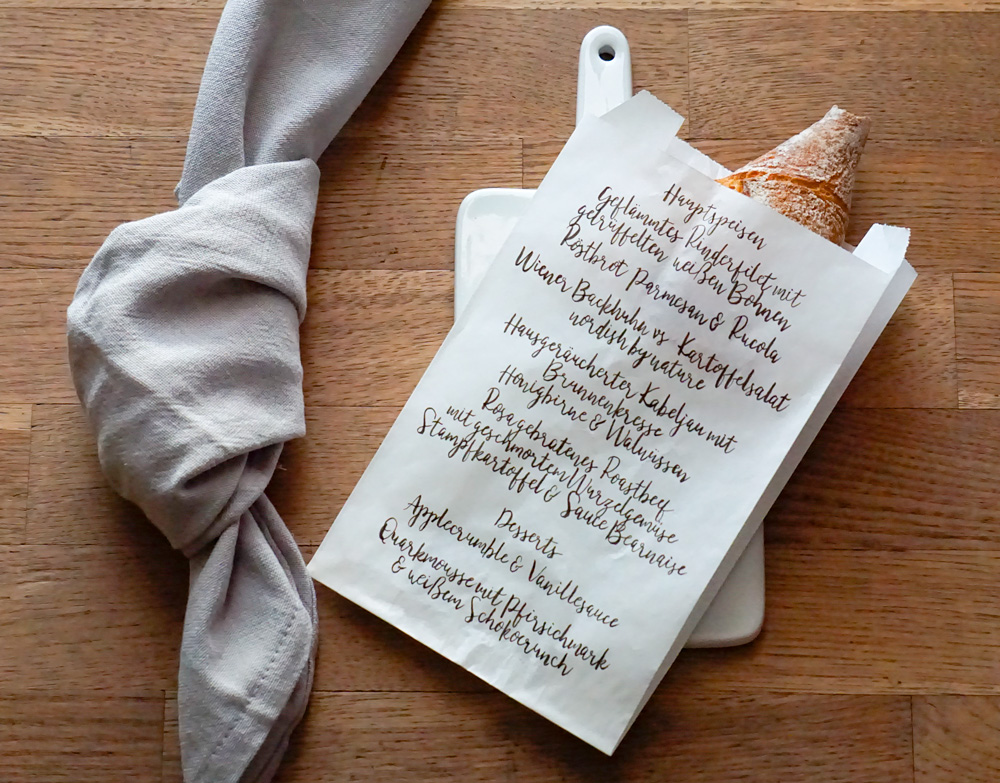 Hauptspeisen
Geflämmtes Rinderfilet mit
getrüffelten weißen Bohnen
Röstbrot Parmesan & Rucola
Wiener Backhuhn vs. Kartoffelsalat
nordish by nature
Hausgeräucherter Kabeljau mit
Brunnenkresse
Honigbirne & Walnüssen
Rosa gebratenes Roastbeef
mit geschmortem Wurzelgemüse
Stampfkartoffel & Sauce Bearnaise
Desserts
Applecrumble & Vanillesauce
Quarkmousse mit Pfirsichmark
& weißem Schokocrunch